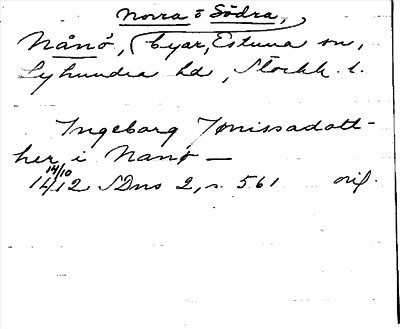 Norra o Södra,
Nånö, byar, Estuna sn,
Lyhundra hd, Stockh. l.
Ingeborg Jonissadott-
her i Nanø —
14/10
1412 SDns 2, s. 561 orig.